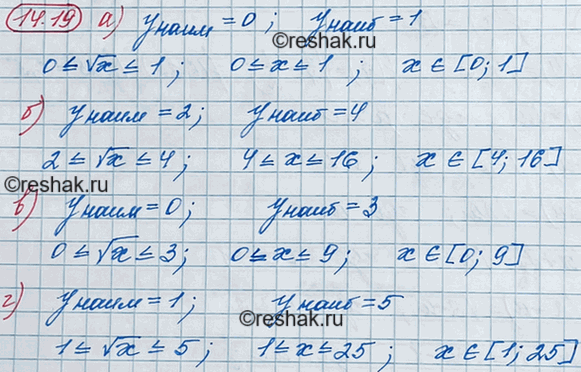 14.19 а) yнаим = 0; yнаиб = 1
©reshak.ru
0 ≤ √x ≤ 1; 0 ≤ x ≤ 1; x ∈ [0; 1]
б) yнаим = 2; yнаиб = 4
2 ≤ √x ≤ 4; 4 ≤ x ≤ 16; x ∈ [4; 16]
©reshak.ru
в) yнаим = 0; yнаиб = 3
0 ≤ √x ≤ 3; 0 ≤ x ≤ 9; x ∈ [0; 9]
©reshak.ru
г) yнаим = 1; yнаиб = 5
1 ≤ √x ≤ 5; 1 ≤ x ≤ 25; x ∈ [1; 25]
©reshak.ru